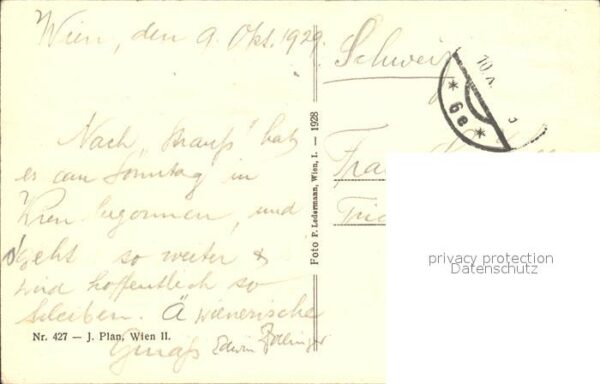 Wien, den 9. Okt. 1929.
Nach „Strauß" hat
es am Sonntag in
Wien begonnen, und
geht so weiter &
wird hoffentlich so
bleiben. Ä wienerische
Gruaß Edwin Bollinger
Nr. 427 — J. Plan, Wien II.
Foto P. Ledermann, Wien, I. — 1928
Schweiz
* 6e *
Frau
privacy protection
Datenschutz